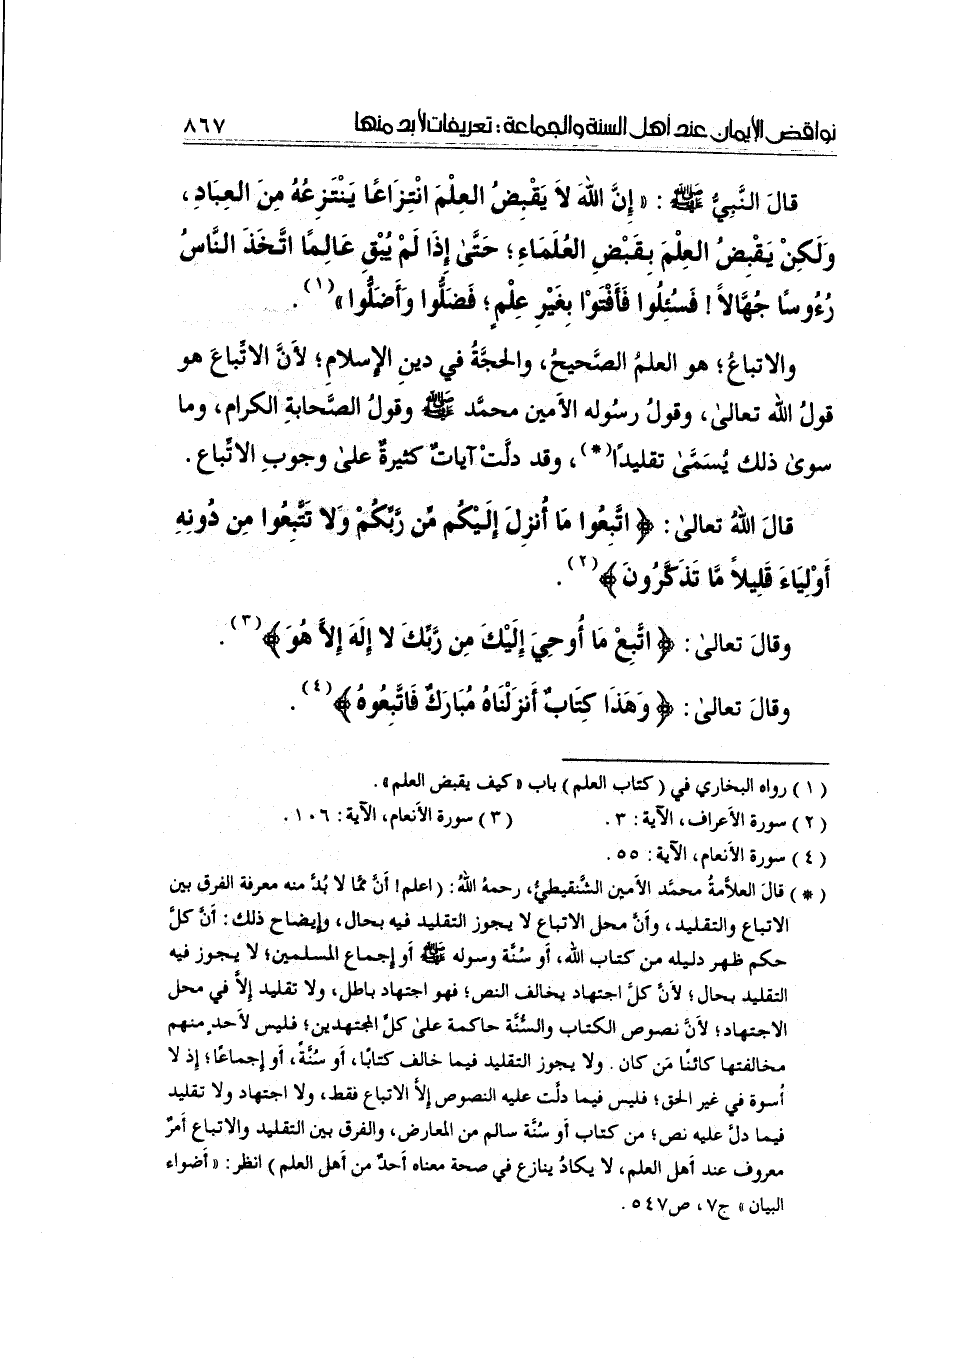 نواقض الإيمان عند أهل السنة والجماعة : تعريفات لابد منها ٨٦٧
قالَ النَّبِيُّ ﷺ : « إِنَّ اللهَ لاَ يَقْبِضُ العِلْمَ انْتِزَاعًا يَنْتَزِعُهُ مِنَ العِبَادِ ،
وَلَكِنْ يَقْبِضُ العِلْمَ بِقَبْضِ العُلَمَاءِ ؛ حَتَّىٰ إِذَا لَمْ يُبْقِ عَالِمًا اتَّخَذَ النَّاسُ
رُءُوسًا جُهَّالاً ! فَسُئِلُوا فَأَفْتَوْا بِغَيْرِ عِلْمٍ ؛ فَضَلُّوا وَأَضَلُّوا »(١) .
والاتباعُ ؛ هو العلمُ الصَّحيحُ ، والحجَّةُ في دينِ الإسلامِ ؛ لأنَّ الاتِّباعَ هو
قولُ الله تعالىٰ ، وقولُ رسوله الأمين محمَّد ﷺ وقولُ الصَّحابةِ الكرام ، وما
سوىٰ ذلك يُسَمَّىٰ تقليدًا(*) ، وقد دلَّتْ آياتٌ كثيرةٌ علىٰ وجوبِ الاتِّباع .
قالَ اللهُ تعالىٰ : ﴿ اتَّبِعُوا مَا أُنزِلَ إِلَيْكُم مِّن رَّبِّكُمْ وَلا تَتَّبِعُوا مِن دُونِهِ
أَوْلِيَاءَ قَلِيلاً مَّا تَذَكَّرُونَ ﴾(٢) .
وقالَ تعالىٰ : ﴿ اتَّبِعْ مَا أُوحِيَ إِلَيْكَ مِن رَّبِّكَ لا إِلَهَ إِلاَّ هُوَ ﴾(٣) .
وقالَ تعالىٰ : ﴿ وَهَذَا كِتَابٌ أَنزَلْنَاهُ مُبَارَكٌ فَاتَّبِعُوهُ ﴾(٤) .
(١) رواه البخاري في ( كتاب العلم ) باب « كيف يقبض العلم » .
(٢) سورة الأعراف ، الآية : ٣ . (٣) سورة الأنعام ، الآية : ١٠٦ .
(٤) سورة الأنعام ، الآية : ٥٥ .
(*) قالَ العلاَّمةُ محمَّد الأمين الشَّنقيطيُ ، رحمهُ اللهُ : ( اعلم ! أنَّ ممَّا لا بُدَّ منه معرفة الفرق بين
الاتباع والتقليد ، وأنَّ محل الاتباع لا يجوز التقليد فيه بحال ، وإيضاح ذلك : أنَّ كلَّ
حكم ظهر دليله من كتاب الله ، أو سُنَّة وسوله ﷺ أو إجماع المسلمين ؛ لا يجوز فيه
التقليد بحال ؛ لأنَّ كلَّ اجتهاد يخالف النص ؛ فهو اجتهاد باطل ، ولا تقليد إلاَّ في محل
الاجتهاد ؛ لأنَّ نصوص الكتاب والسُّنَّة حاكمة علىٰ كلِّ المجتهدين ؛ فليس لأحدٍ منهم
مخالفتها كائنًا مَن كان . ولا يجوز التقليد فيما خالف كتابًا ، أو سُنَّةً ، أو إجماعًا ؛ إذ لا
أسوة في غير الحق ؛ فليس فيما دلَّت عليه النصوص إلاَّ الاتباع فقط ، ولا اجتهاد ولا تقليد
فيما دلَّ عليه نص ؛ من كتاب أو سُنَّة سالم من المعارض ، والفرق بين التقليد والاتباع أمرٌ
معروف عند أهل العلم ، لا يكادُ ينازع في صحة معناه أحدٌ من أهل العلم ) انظر : « أضواء
البيان » ج٧ ، ص٥٤٧ .